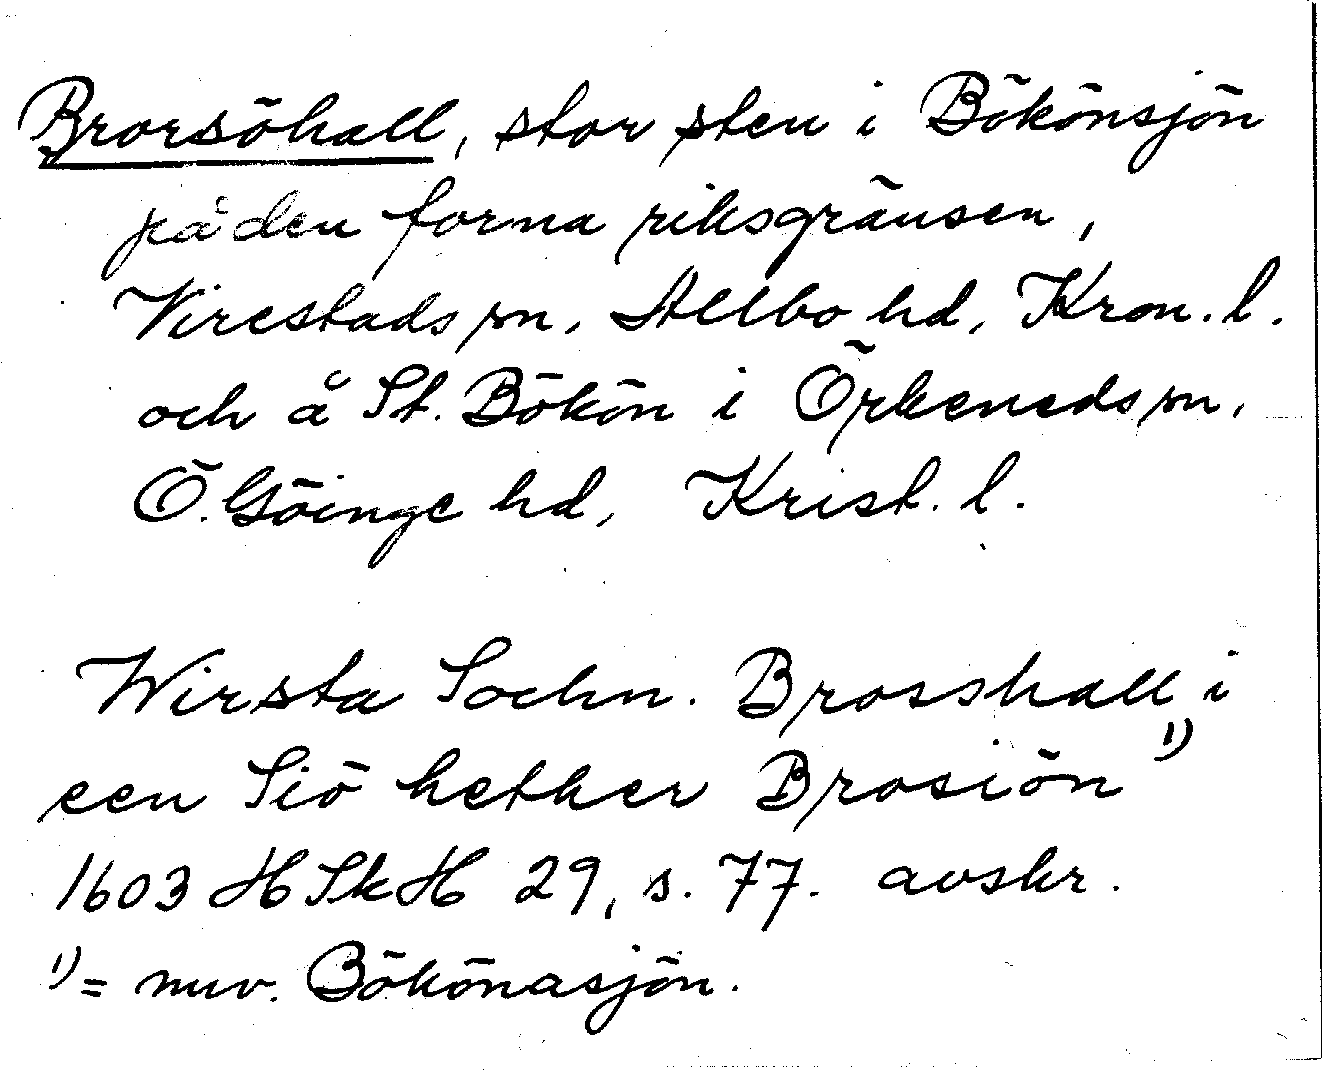 Brorsöhall, stor sten i Bökönsjön
på den forna riksgränsen,
Virestads sn, Allbo hd, Kron. l.
och å St. Bökön i Örkeneds sn,
Ö. Göinge hd, Krist. l.
Wirsta Sochn. Brosshall i
een Siö hether Brosiön 1)
1603 HSkH 29, s. 77. avskr.
1) = nuv. Bökönasjön.